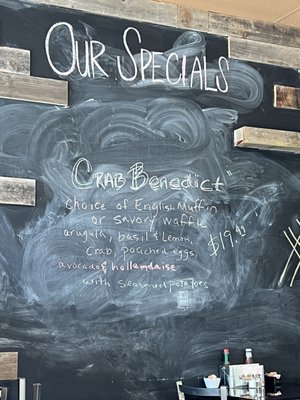 Our Specials
"Crab Benedict"
Choice of English Muffin
or savory waffle
arugula, basil & Lemon,
Crab, poached eggs,
avocado & hollandaise
with seasoned potatoes
$19.49